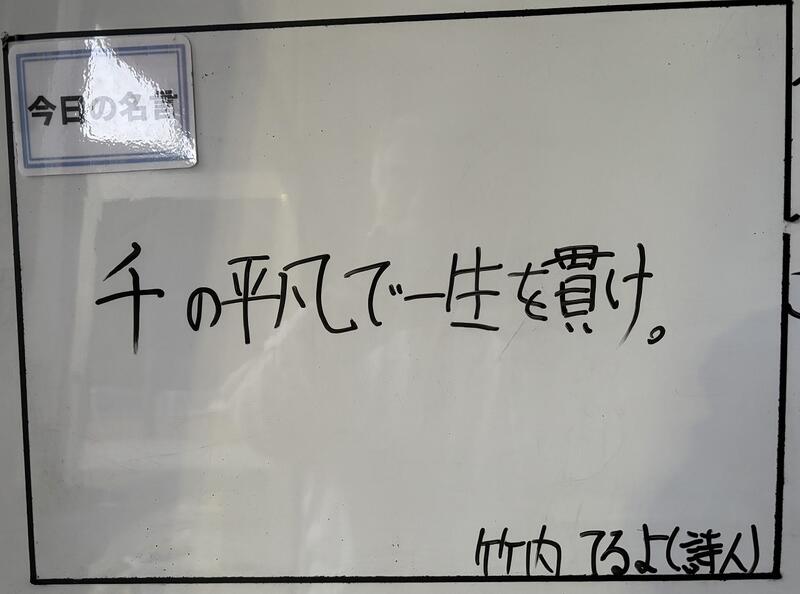 今日の名言
千の平凡で一生を貫け。
竹内 てるよ(詩人)